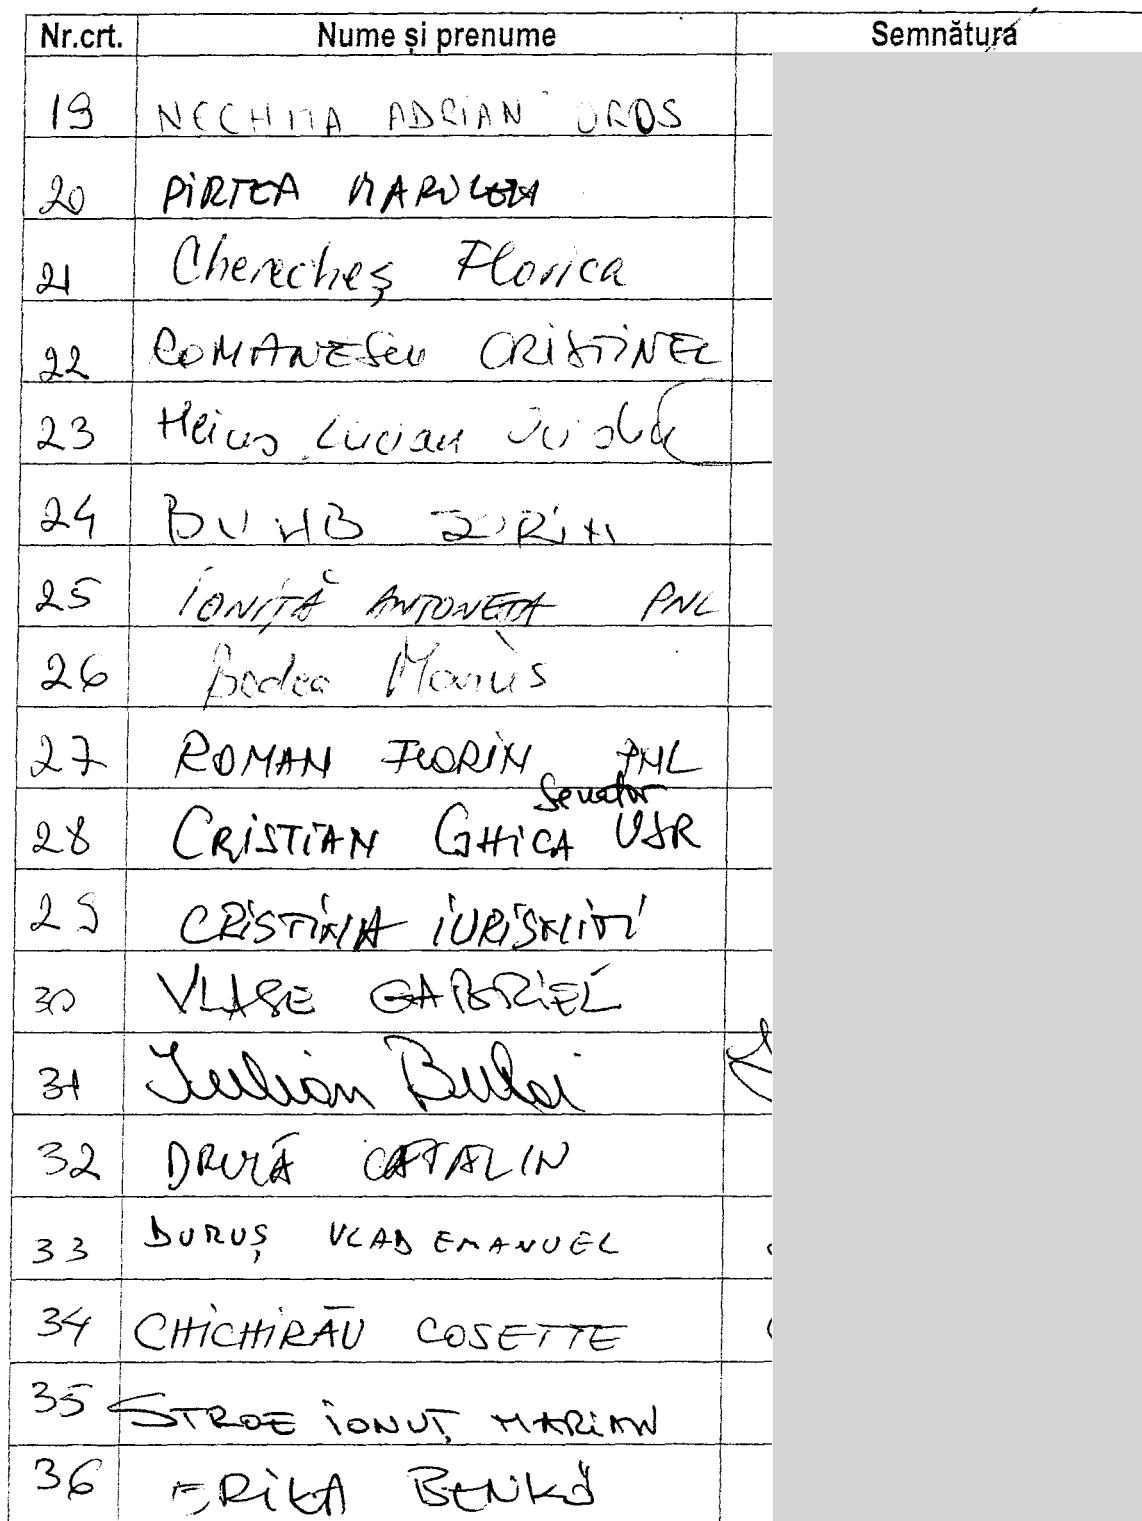 Nr.crt. Nume și prenume Semnătura
19 NECHITA ADRIAN OROS
20 PIRTEA MARILENA
21 Cherecheș Florica
22 ROMANESCU CRISTINEL
23 Heius Lucian
24 SORIN
25 IONIȚĂ ANTONETA PNL
26 Bodea Marius
27 ROMAN FLORIN PNL
Senator
28 CRISTIAN GHICA USR
29 CRISTINA IURISNITI
30 VLASE GABRIEL
31 Iulian Bulai
32 DRULĂ CATALIN
33 DURUȘ VLAD EMANUEL
34 CHICHIRĂU COSETTE
35 STROE IONUȚ MARIAN
36 ERIKA BENKŐ